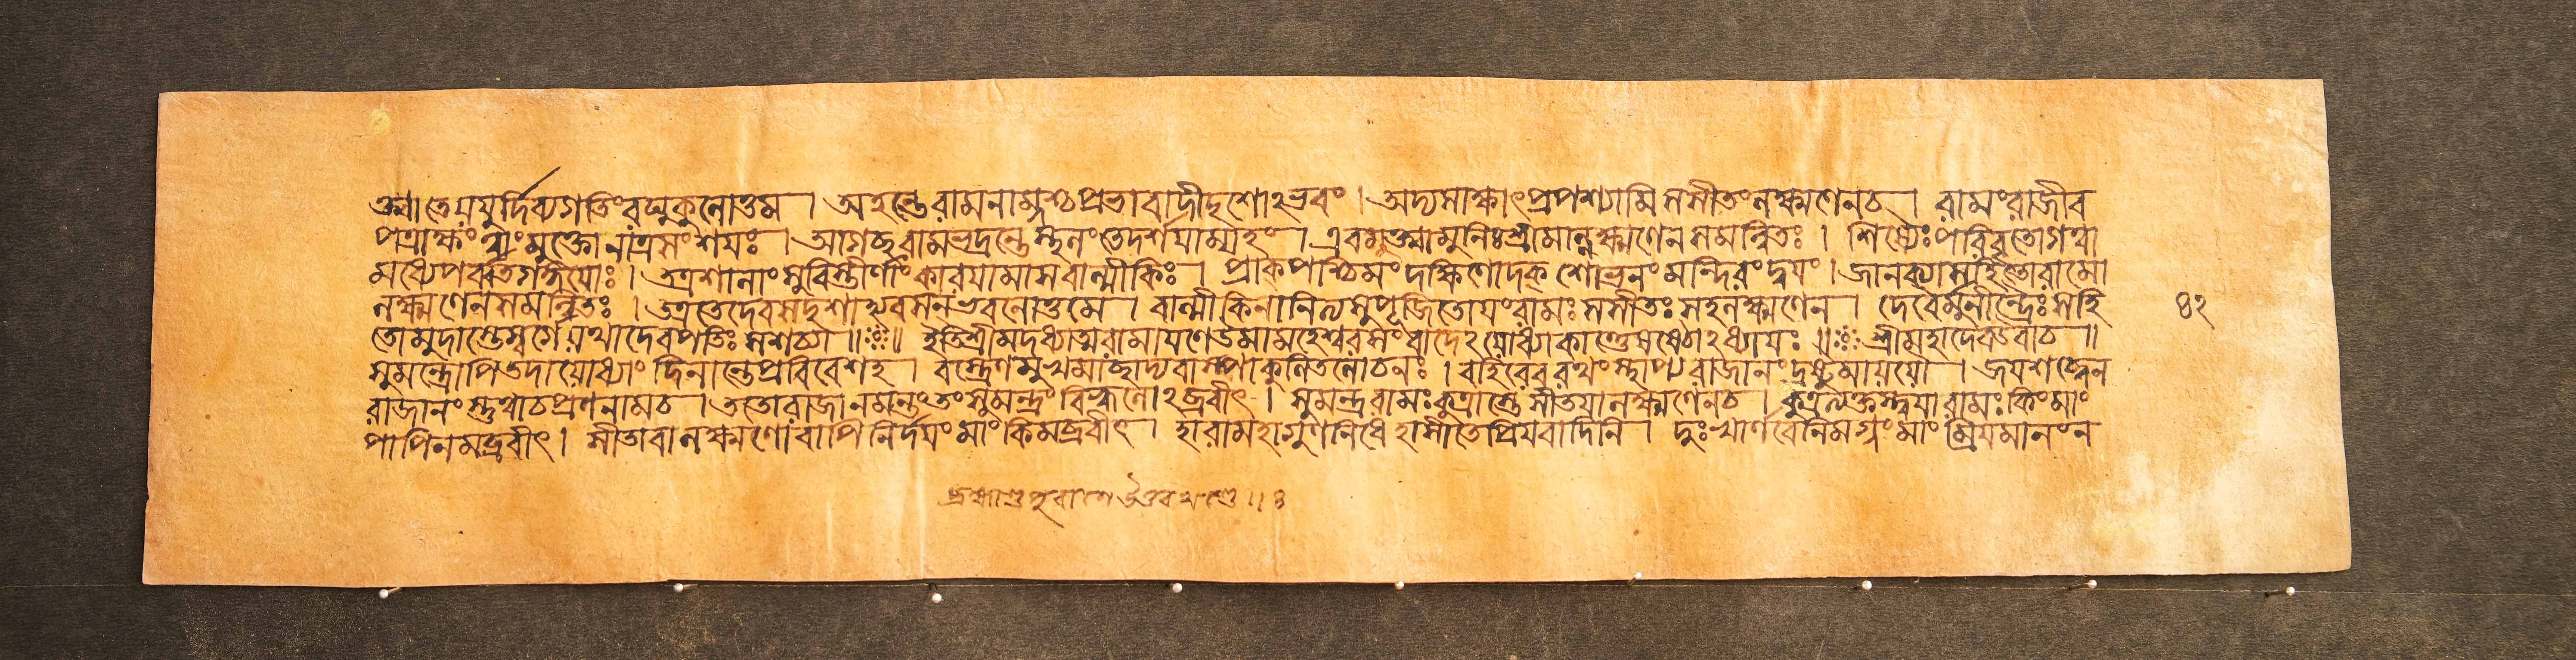 ক্ত্বা তে যযুর্দিব্যগতিং রঘুকুলোত্তম । অহন্তে রামনাম্নশ্চ প্রভাবাদীদৃশোঽভবং । অদ্য সাক্ষাৎ প্রপশ্যামি সসীতং লক্ষ্মণেন চ । রামং রাজীব
পত্রাক্ষং ত্বাং মুক্তো নাত্র সংশয়ঃ । আগচ্ছ রাম ভদ্রন্তে স্থলং তে দর্শয়াম্যহং । এবমুক্ত্বা মুনিঃ শ্রীমান্লক্ষ্মণেন সমন্বিতঃ । শিষ্যৈঃ পরিবৃতো গত্বা
মধ্যে পর্বতগঙ্গয়োঃ । তত্র শালাং সুবিস্তীর্ণাং কারয়ামাস বাল্মীকিঃ । প্রাক্পশ্চিমং দক্ষিণোদক্ শোভনং মন্দিরং দ্বয়ং । জানক্যা সহিতো রামো
লক্ষ্মণেন সমন্বিতঃ । তত্র তে দেবসদৃশা হ্যবসন্ ভবনোত্তমে । বাল্মীকিনা নিত্যসুপূজিতোয়ং রামঃ সসীতঃ সহ লক্ষ্মণেন । দেবৈর্মুনীন্দ্রৈঃ সহি
৪২
তো মুদাস্তে স্বর্গে যথা দেবপতিঃ সশচ্যা ॥ ॥ ইতি শ্রীমদধ্যাত্মরামায়ণে উমামহেশ্বরসংবাদেঽযোধ্যাকাণ্ডে ষষ্ঠোঽধ্যায়ঃ ॥ শ্রীমহাদেব উবাচ ॥
সুমন্ত্রোপি তদাযোধ্যাং দিনান্তে প্রবিবেশ হ । বস্ত্রেণ মুখমাচ্ছাদ্য বাষ্পাকুলিতলোচনঃ । বহিরেব রথং স্থাপ্য রাজানং দ্রষ্টুমাযযৌ । জয়শব্দেন
রাজানং স্তুত্বাথ প্রণনাম চ । ততো রাজা নমন্তং তং সুমন্ত্রং বিহ্বলোঽব্রবীৎ । সুমন্ত্র রামঃ কুত্রাস্তে সীতয়া লক্ষ্মণেন চ । কুত্র ত্যক্তস্ত্বয়া রামঃ কিং মাং
পাপিনমব্রবীৎ । সীতা বা লক্ষ্মণো বাপি নির্দয়ং মাং কিমব্রবীৎ । হা রাম হা গুণনিধে হা সীতে প্রিয়বাদিনি । দুঃখার্ণবে নিমগ্নং মাং ম্রিয়মানং ন
ব্রহ্মাণ্ডপুরাণে উত্তরখণ্ডে ॥